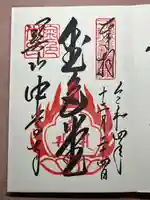 奉拝
令和四年
十二月二十四日
金色堂
関山
中尊寺